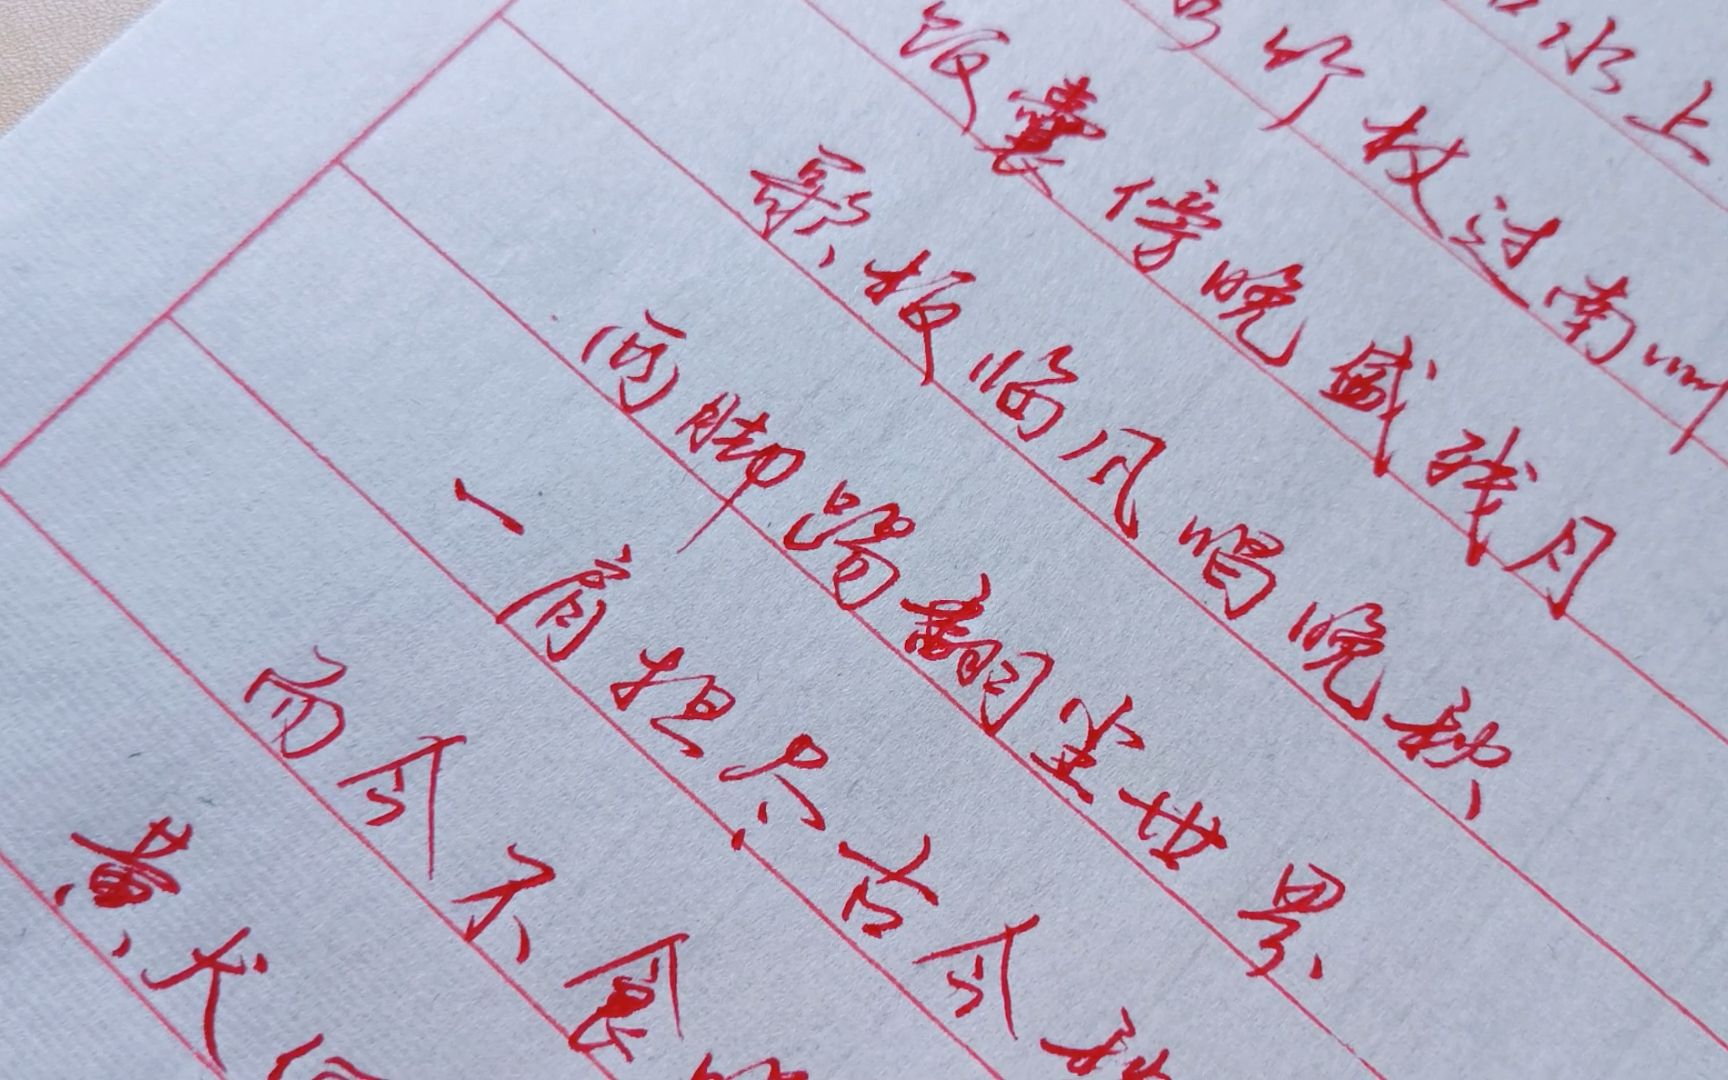 水上
竹杖过南州
饭囊傍晚盛残月
歌板临风唱晚秋
两脚踢翻尘世界
一肩担尽古今秋
而今不食
黄犬何